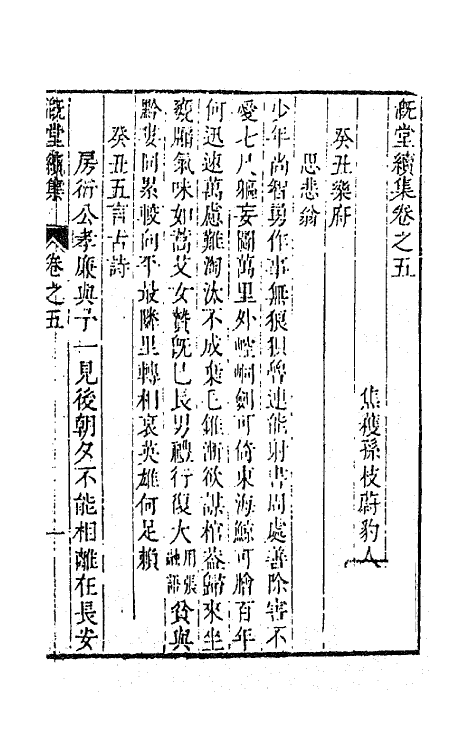 溉堂續集卷之五
焦穫孫枝蔚豹人
癸丑樂府
思悲翁
少年尚智勇作事無狼狽魯連能射書周處善除害不
愛七尺軀妄圖萬里外崆峒劍可倚東海鯨可膾百年
何迅速萬慮難淘汰不成棄毛錐漸欲謀棺蓋歸來坐
甕牖氣味如蒿艾女贅旣已長男禮行復大用張融語貧與
黔婁同累較向平最隣里轉相哀英雄何足賴
癸丑五言古詩
房衍公孝廉與予一見後朝夕不能相離在長安
溉堂續集 卷之五 一